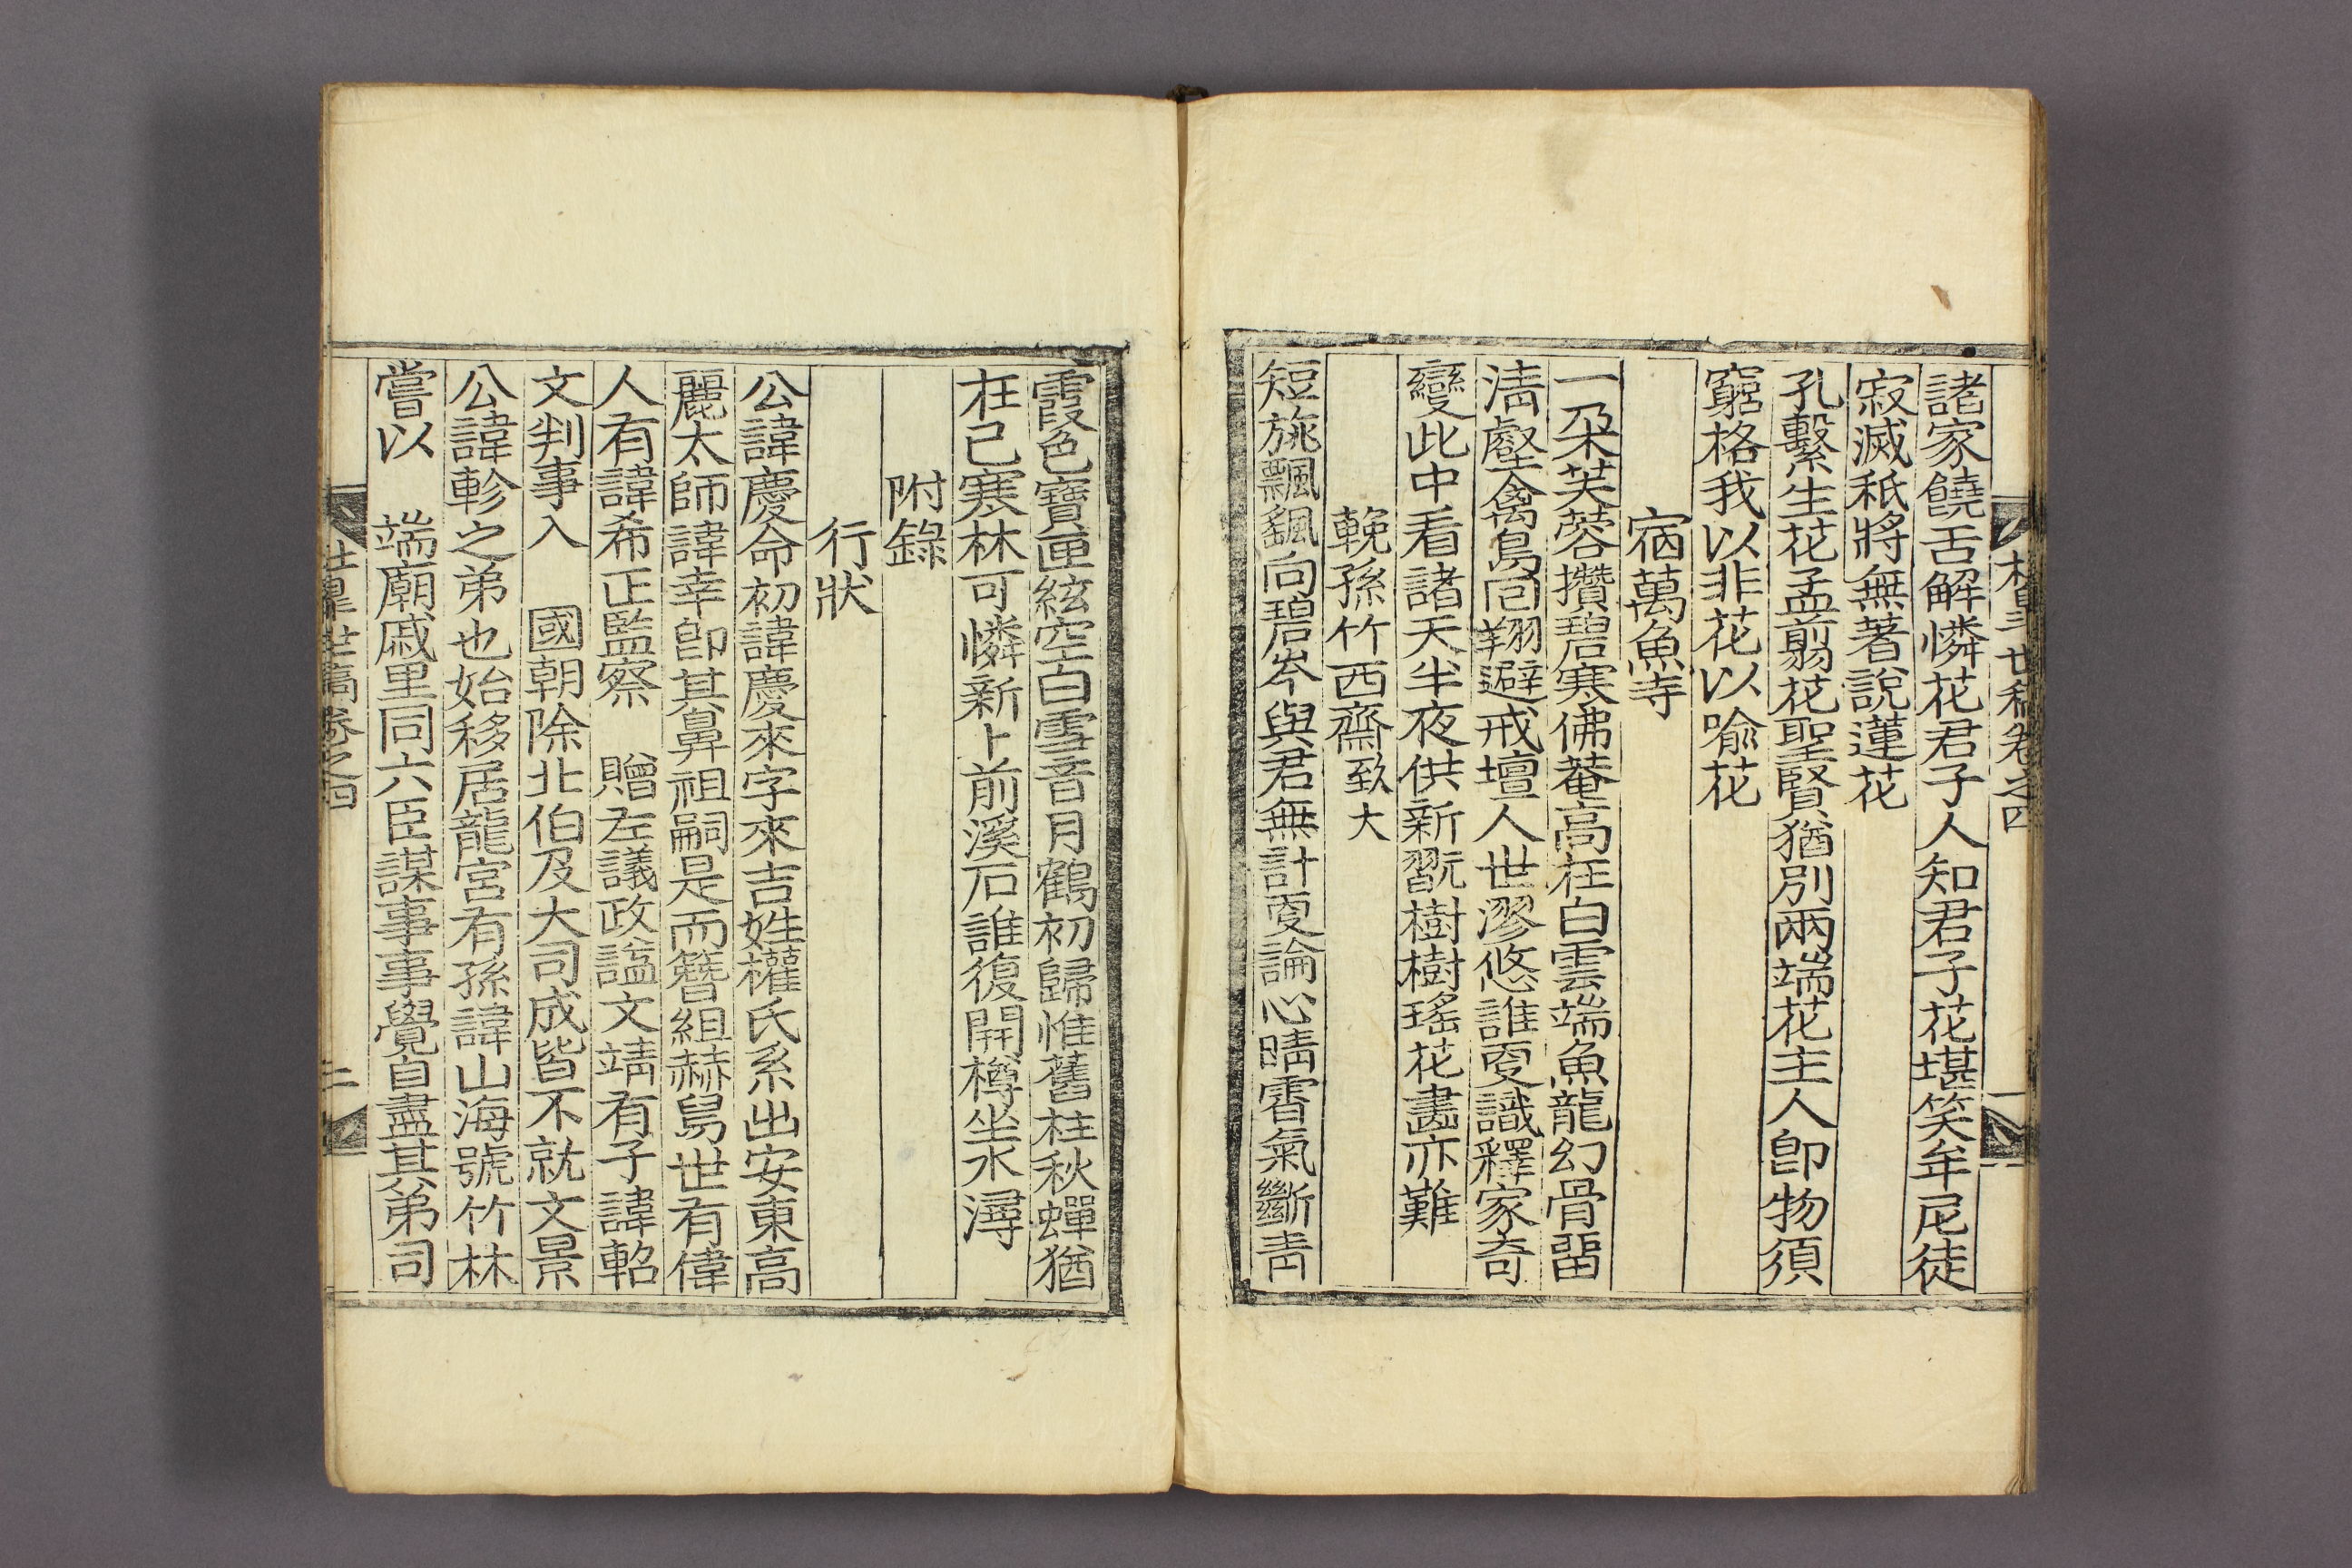 世稿卷之四 一
諸家饒舌解憐花君子人知君子花堪笑牟尼徒
寂滅秖將無著說蓮花
孔繫生花孟翦花聖賢猶別兩端花主人卽物須
窮格我以非花以喻花
宿萬魚寺
一朶芙蓉攢碧寒佛菴高在白雲端魚龍幻骨留
淸壑禽鳥回翔避戒壇人世漻悠誰更識釋家奇
變此中看諸天半夜供新翫樹樹瑤花畵亦難
輓孫竹西齋致大
短旐飄颻向碧岑與君無計更論心晴霄氣斷靑
霞色寶匣絃空白雪音月鶴初歸惟舊柱秋蟬猶
在已寒林可憐新上前溪石誰復開樽坐水潯
附錄
行狀
公諱慶命初諱慶來字來吉姓權氏系出安東高
麗太師諱幸卽其鼻祖嗣是而簪組赫舃世有偉
人有諱希正監察 贈左議政諡文靖有子諱軺
文判事入 國朝除北伯及大司成皆不就文景
公諱軫之弟也始移居龍宮有孫諱山海號竹林
嘗以 端廟戚里同六臣謀事事覺自盡其弟司
世稿卷之四 二